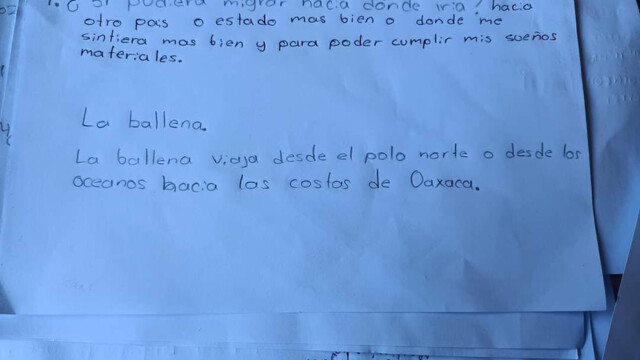 1. ¿ Si pudiera migrar hacia donde iria? hacia
otro pais o estado mas bien o donde me
sintiera mas bien y para poder cumplir mis sueños
materiales.
La ballena.
La ballena viaja desde el polo norte o desde los
oceanos hacia las costas de Oaxaca.